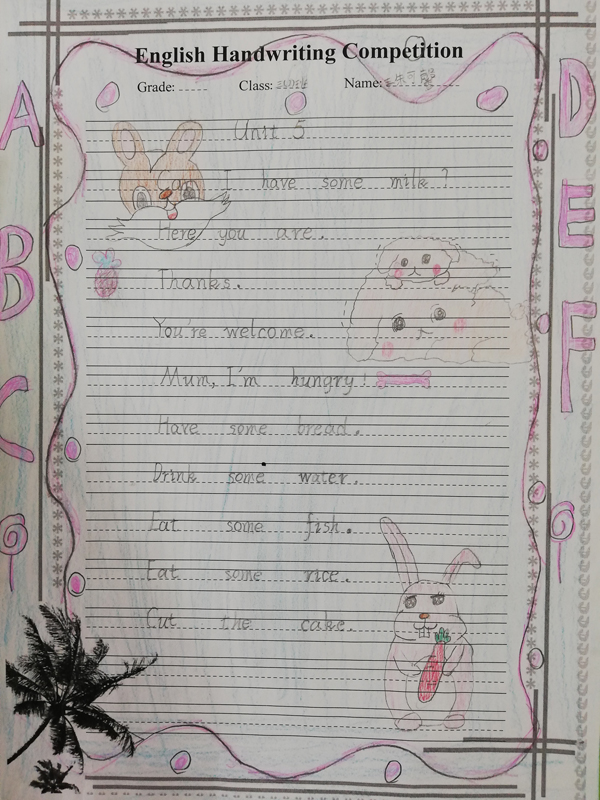 English Handwriting Competition
Grade: Class: Name:
Unit 5
Can I have some milk?
Here you are.
Thanks.
You're welcome.
Mum, I'm hungry!
Have some bread.
Drink some water.
Eat some fish.
Eat some rice.
Cut the cake.
A
B
C
D
E
F